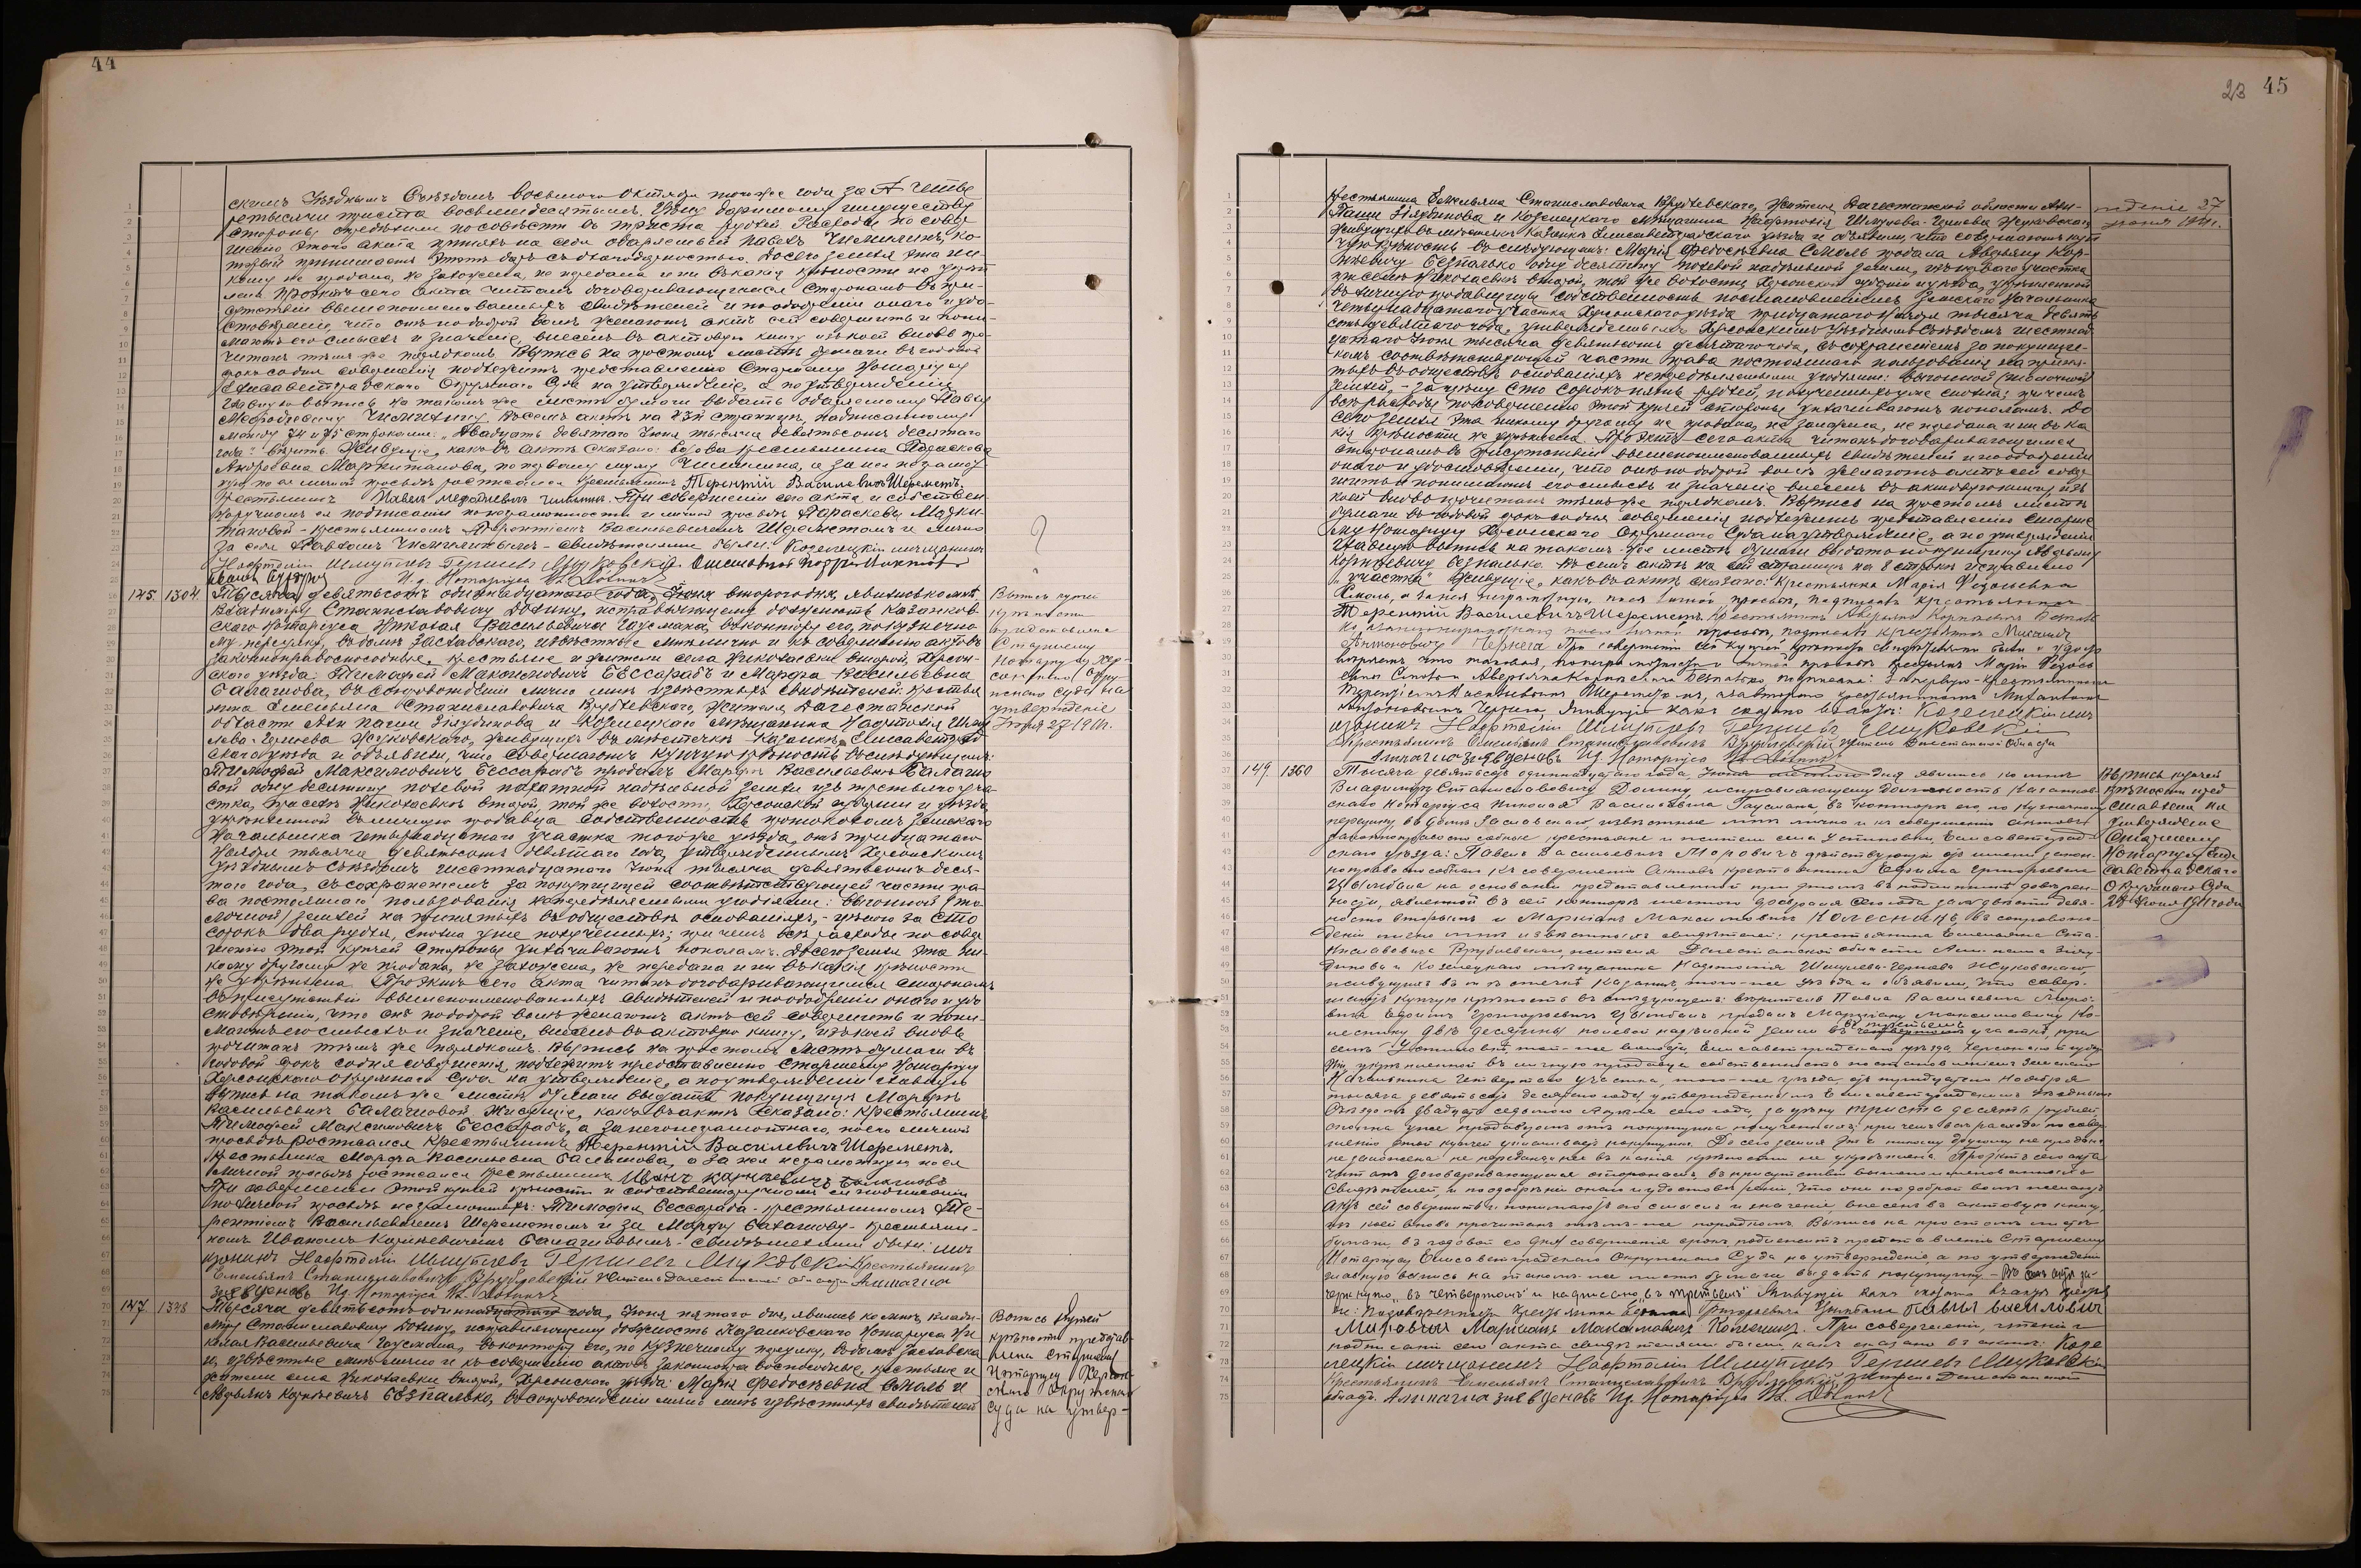 44
скимъ Уѣзднымъ Съѣздомъ восьмого Октября того же года за № четы
ретысячи триста восьмидесятымъ. Цѣну даримому имуществу
стороны опредѣлили по совѣсти въ триста рублей. Расходы по совер
шенію этого акта принялъ на себя одаряемый Павелъ Чиликинъ, ко-
торый принимаетъ этотъ даръ съ благодарностью. До сего земля эта ни-
кому не продана, не заложена, не передана и ни въ какія крѣпости не укрѣп
лена. Проэктъ сего акта читанъ договаривающимся сторонамъ въ при-
сутствіи вышепоименованныхъ свидѣтелей и по одобреніи онаго и удо-
стовѣреніи, что они по доброй волѣ желаютъ актъ сей совершить и пони-
маютъ его смыслъ и значеніе, внесенъ въ актовую книгу, изъ коей вновь про-
читанъ тѣмъ же порядкомъ. Выпись на простомъ листѣ бумаги въ годовой
срокъ со дня совершенія подлежитъ представленію Старшему Нотаріусу
Елисаветградскаго Окружнаго Суда на утвержденіе, а по утвержденіи
главную выпись на такомъ же листѣ бумаги выдать одаряемому Павлу
Меѳодіевичу Чиликину. Въ семъ актѣ на 43й страницѣ, надписанному
между 74 и 75 строками: "Двадцать девятаго Іюня тысяча девятьсотъ десятаго
года" вѣрить. Живущіе, какъ въ актѣ сказано: вдова крестьянина Параскева
Андреевна Маркитанова, по первому мужу Чиликина, а за нея неграмот
ную по ея личной просьбѣ росписался крестьянинъ Терентій Василевичъ Шереметъ.
Крестьянинъ Павелъ Меѳодіевичъ Чиликинъ. При совершеніи сего акта и собствен
норучномъ ея подписаніи по неграмотности и личной просьбѣ Параскевы Марки-
тановой - крестьяниномъ Терентіемъ Васильевичемъ Шереметомъ и лично
за себя Павломъ Чиликинымъ - свидѣтелями были: Козелецкій мѣщанинъ
Нафталій Шмулевъ Гершевъ Жуковскій.
И. д. Нотаріуса Вл. Долинъ
145 1304 Тысяча девятьсотъ одиннадцатаго года, Іюня второго дня, явились ко мнѣ,
Владиміру Станиславовичу Долину, исправляющему должность Казанков-
скаго Нотаріуса Николая Васильевича Гаусмана, въ контору его, по Кузнечно
му переулку, въ домѣ Заславскаго, извѣстные мнѣ лично и къ совершенію актовъ
законноправоспособные, крестьяне и жители села Николаевки второй, Херсон-
скаго уѣзда: Тимофей Максимовичъ Бессарабъ и Марфа Васильевна
Балашова, въ сопровожденіи лично мнѣ извѣстныхъ свидѣтелей: крестья
нина Емельяна Станиславовича Врублевскаго, жителя Дагестанской
области Али Паши Зіяудинова и Козелецкаго мѣщанина Нафталія Шму
лева-Гершева Жуковскаго, живущихъ въ мѣстечкѣ Казанкѣ, Елисаветград
скаго уѣзда и объявили, что совершаютъ купчую крѣпость въ слѣдующемъ:
Тимофей Максимовичъ Бессарабъ продалъ Марфѣ Васильевнѣ Балашо
вой одну десятину полевой пахатной надѣльной земли изъ третьяго уча-
стка, при селѣ Николаевкѣ второй, той же волости, Херсонской губерніи и уѣзда,
укрѣпленной въ личную продавца собственность протоколомъ Земскаго
Начальника четырнадцатаго участка того же уѣзда, отъ тридцатаго
Ноября тысяча девятьсотъ девятаго года, утвержденнымъ Херсонскимъ
Уѣзднымъ Съѣздомъ шестнадцатаго Іюня тысяча девятьсотъ деся-
таго года, съ сохраненіемъ за покупщицей соотвѣтствующей части пра-
ва постояннаго пользованія нераздѣляемыми угодіями: выгонной (то
лочной) землей на принятыхъ въ обществѣ основаніяхъ, - цѣною за сто
сорокъ два рубля, сполна уже полученныхъ; при чемъ всѣ расходы по совер
шенію этой купчей стороны уплачиваютъ пополамъ. До сего земля эта ни-
кому другому не продана, не заложена, не передана и ни въ какія крѣпости
не укрѣплена. Проэктъ сего акта читанъ договаривающимся сторонамъ
въ присутствіи вышепоименованныхъ свидѣтелей и по одобреніи онаго и удо
стовѣреніи, что они по доброй волѣ желаютъ актъ сей совершить и пони-
маютъ его смыслъ и значеніе, внесенъ въ актовую книгу, изъ коей вновь
прочитанъ тѣмъ же порядкомъ. Выпись на простомъ листѣ бумаги въ
годовой срокъ со дня совершенія, подлежитъ представленію Старшему Нотаріусу
Херсонскаго Окружнаго Суда на утвержденіе, а по утвержденіи главную
выпись на такомъ же листѣ бумаги выдать покупщицѣ Марфѣ
Васильевнѣ Балашовой. Живущіе, какъ въ актѣ сказано: крестьянинъ
Тимофей Максимовичъ Бессарабъ, а за него неграмотнаго, по его личной
просьбѣ росписался крестьянинъ Терентій Василевичъ Шереметъ.
Крестьянка Марфа Васильевна Балашова, а за нея неграмотную по ея
личной просьбѣ росписался крестьянинъ Иванъ Корнѣевичъ Балашовъ
При совершеніи этой купчей крѣпости и собственноручномъ ея подписаніи
по личной просьбѣ неграмотныхъ: Тимофея Бессараба - крестьяниномъ Те-
рентіемъ Васильевичемъ Шереметомъ и за Марфу Балашову - крестьяни-
номъ Иваномъ Корнѣевичемъ Балашовымъ - свидѣтелями были: мѣ
щанинъ Нафталій Шмулевъ Гершевъ Жуковскій Крестьянинъ
Емельянъ Станиславовичъ Врублевскій житель Дагестанской области Алипаша
Зіявденовъ Ид. Нотаріуса Вл. Долинъ
147 1348 Тысяча девятьсотъ одиннадцатаго года, Іюня пятаго дня, явились ко мнѣ, Влади-
міру Станиславовичу Долину, исправляющему должность Казанковскаго Нотаріуса Ни
колая Васильевича Гаусмана, въ контору его, по Кузнечному переулку, въ домѣ Заславска
го, извѣстные мнѣ лично и къ совершенію актовъ законноправоспособные, крестьяне и
жители села Николаевки второй, Херсонскаго уѣзда: Марія Федосѣевна Соколь и
Аверьянъ Корнѣевичъ Безпалько, въ сопровожденіи лично мнѣ извѣстныхъ свидѣтелей
Выпись купчей
крѣпости
представлена
Старшему
Нотаріусу Хер-
сонскаго Окру
жнаго Суда на
утвержденіе
Іюня 27 1911г.
Выпись купчей
крѣпости представ-
лена Старшему
Нотаріусу Херсон-
скаго Окружнаго
Суда на утвер-
23 45
крестьянина Емельяна Станиславовича Врублевскаго, жителя Дагестанской области Али-
Паши Зіяудинова и Козелецкаго мѣщанина Нафталія Шмулева-Гершева Жуковскаго,
живущихъ въ мѣстечкѣ Казанкѣ Елисаветградскаго уѣзда и объявили, что совершаютъ куп
чую крѣпость въ слѣдующемъ: Марія Федосѣевна Соколь продала Аверьяну Кор-
нѣевичу Безпалько одну десятину полевой надѣльной земли, изъ перваго участка
при селѣ Николаевкѣ второй, той же волости, Херсонской губерніи и уѣзда, укрѣпленной
въ личную продавщицы собственность постановленіемъ Земскаго Начальника
четырнадцатаго участка Херсонскаго уѣзда тридцатаго Ноября тысяча девять
сотъ девятаго года, утвержденнымъ Херсонскимъ Уѣзднымъ Съѣздомъ шестнад
цатаго Іюня тысяча девятьсотъ десятаго года, съ сохраненіемъ за покупщи-
комъ соотвѣтствующей части права постояннаго пользованія на приня-
тыхъ въ обществѣ основаніяхъ нераздѣляемыми угодіями: выгонной (толочной)
землей, - за цѣну сто сорокъ пять рублей, полученныхъ уже сполна; при чемъ
всѣ расходы по совершенію этой купчей стороны уплачиваютъ пополамъ. До
сего земля эта никому другому не продана, не заложена, не передана и ни въ ка
кія крѣпости не укрѣплена. Проэктъ сего акта читанъ договаривающимся
сторонамъ въ присутствіи вышепоименованныхъ свидѣтелей и по одобреніи
онаго и удостовѣреніи, что они по доброй волѣ желаютъ актъ сей совер
шить и понимаютъ его смыслъ и значеніе внесенъ въ актовую книгу, изъ
коей вновь прочитанъ тѣмъ же порядкомъ. Выпись на простомъ листѣ
бумаги въ годовой срокъ со дня совершенія подлежитъ представленію Старше
му Нотаріусу Херсонскаго Окружнаго Суда на утвержденіе, а по утвержденіи
главную выпись на такомъ-же листѣ бумаги выдать покупщику Аверьяну
Корнѣевичу Безпалько. Въ семъ актѣ на сей страницѣ на 8 строкѣ исправлено
"участка" Живущіе, какъ въ актѣ сказано: Крестьянка Марія Федосѣевна
Соколь, а за нея неграмотную, по ея личной просьбѣ, подписался крестьянинъ
Терентій Василевичъ Шереметъ. Крестьянинъ Аверьянъ Корнѣевичъ Безпаль
ко, а за него неграмотнаго по его личной просьбѣ, подписался крестьянинъ Михаилъ
Антоновичъ Чернега При совершеніи сей купчей крѣпости свидѣтелями были и удосто
Терентіемъ Васильевичемъ Шереметомъ, за второго крестьяниномъ Михаиломъ
Антоновичемъ Чернега, Живущіе какъ сказано въ актѣ: Козелецкій мѣ
щанинъ Нафталій Шмулевъ Гершевъ Жуковскій
Крестьянинъ Емельянъ Станиславовичъ Врублевскій житель Дагестанской области
Алипаша Зіявденовъ Ид. Нотаріуса Вл. Долинъ
149 1360 Тысяча девятьсотъ одиннадцатаго года, Іюня дня явились ко мнѣ
Владиміру Станиславовичу Долину, исправляющему должность Казанков-
скаго Нотаріуса Николая Васильевича Гаусмана, въ контору его, по Кузнечному
переулку, въ домѣ Заславскаго, извѣстные мнѣ лично и къ совершенію актовъ
законноправоспособные крестьяне и жители села Устиновки, Елисаветград-
скаго уѣзда: Павелъ Васильевичъ Моровичъ дѣйствующій отъ имени закон-
ноправоспособнаго къ совершенію актовъ крестьянина Ефима Григорьевича
Цымбала на основаніи представленной при этомъ въ подлинникѣ довѣрен-
ности, явленной въ сей конторѣ шестого Февраля сего года за № девя-
носто вторымъ и Маркіанъ Максимовичъ Колесникъ, въ сопровож-
деніи лично мнѣ извѣстныхъ свидѣтелей: крестьянина Емельяна Ста-
ниславовича Врублевскаго, жителя Дагестанской области Али Паши Зіяу-
динова и Козелецкаго мѣщанина Нафталія Шмулева-Гершева Жуковскаго,
живущихъ въ мѣстечкѣ Казанкѣ, того-же уѣзда и объявили, что совер-
шаютъ купчую крѣпость въ слѣдующемъ: вѣритель Павла Васильевича Моро-
вича Ефимъ Григорьевичъ Цымбалъ продалъ Маркіану Максимовичу Ко-
въ третьемъ
леснику двѣ десятины полевой надѣльной земли въ четвертомъ участкѣ, при
селѣ Устиновкѣ, той-же волости, Елисаветградскаго уѣзда, Херсонской губер
ніи, укрѣпленной въ личную продавца собственность постановленіемъ Земскаго
Начальника четвертаго участка, того-же уѣзда, отъ тридцатаго Ноября
тысяча девятьсотъ десятаго года, утвержденнымъ Елисаветградскимъ Уѣзднымъ
Съѣздомъ двадцать седьмого Апрѣля сего года, за цѣну триста десять рублей
сполна уже продавцомъ отъ покупщика полученныхъ; при чемъ всѣ расходы по совер
шенію этой купчей уплачиваетъ покупщикъ. До сего земля эта никому другому не продана
не заложена не передана и ни въ какія крѣпости не укрѣплена. Проэктъ сего акта
читанъ договаривающимся сторонамъ, въ присутствіи вышепоименованныхъ
свидѣтелей, и по одобреніи онаго и удостовѣреніи, что они по доброй волѣ желаютъ
актъ сей совершить и понимаютъ его смыслъ и значеніе внесенъ въ актовую книгу,
изъ коей вновь прочитанъ тѣмъ-же порядкомъ. Выпись на простомъ листѣ
бумаги, въ годовой со дня совершенія срокъ подлежитъ представленію Старшему
Нотаріусу Елисаветградскаго Окружнаго Суда на утвержденіе, а по утвержденіи
главную выпись на такомъ-же листѣ бумаги выдать покупщику. - Въ семъ актѣ за-
черкнуто "въ четвертомъ" и надписано "въ третьемъ" Живущіе какъ сказано въ актѣ
Григорьевича Цымбала Павелъ Василовичъ
Моровичъ Маркіанъ Максимовичъ Колесникъ. При совершеніи, чтеніи и
подписаніи сего акта свидѣтелями были, какъ сказано въ актѣ: Козе
лецкій мѣщанинъ Нафталій Шмулевъ Гершевъ Жуковскій
Крестьянинъ Емельянъ Станиславовичъ Врублевскій житель Дагестанской
области Алипаша Зиявденовъ Ид. Нотаріуса Вл. Долинъ
жденіе 27
Іюня 1911г.
Выпись купчей
крѣпости пред
ставлена на
утвержденіе
Старшему
Нотаріусу Ели
саветградскаго
Окружнаго Суда
27 Іюня 1911 года